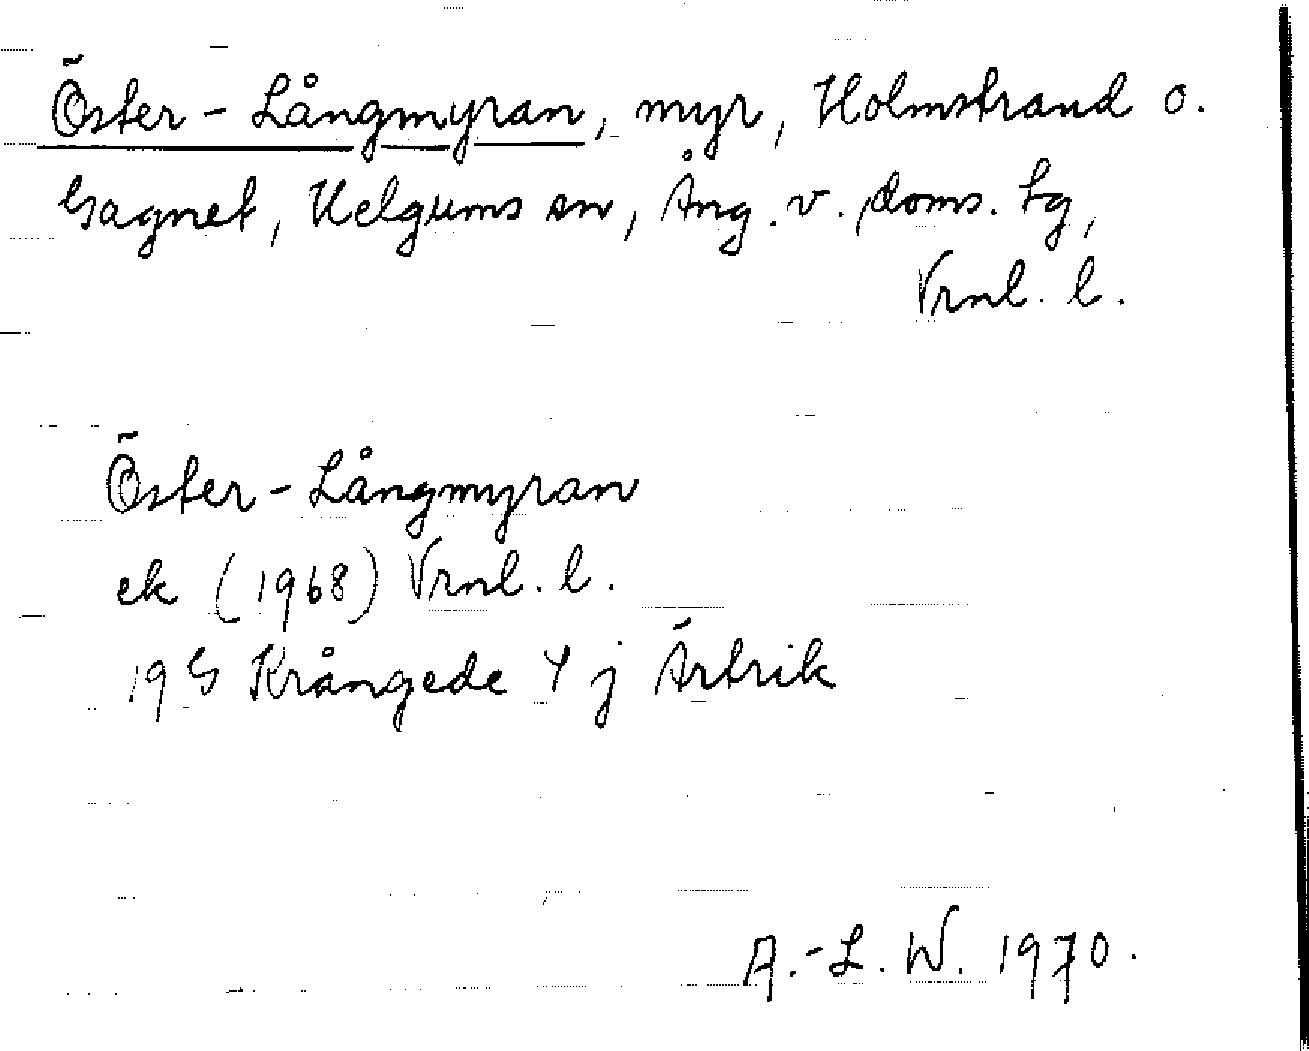 Öster-Långmyran, myr, Holmstrand o.
Gagnet, Helgums sn, Ång. v. doms. tg,
Vrnl. l.
Öster-Långmyran
ek (1968) Vrnl. l.
19 G Krångede 4 j Ärtrik
A.-L. W. 1970.